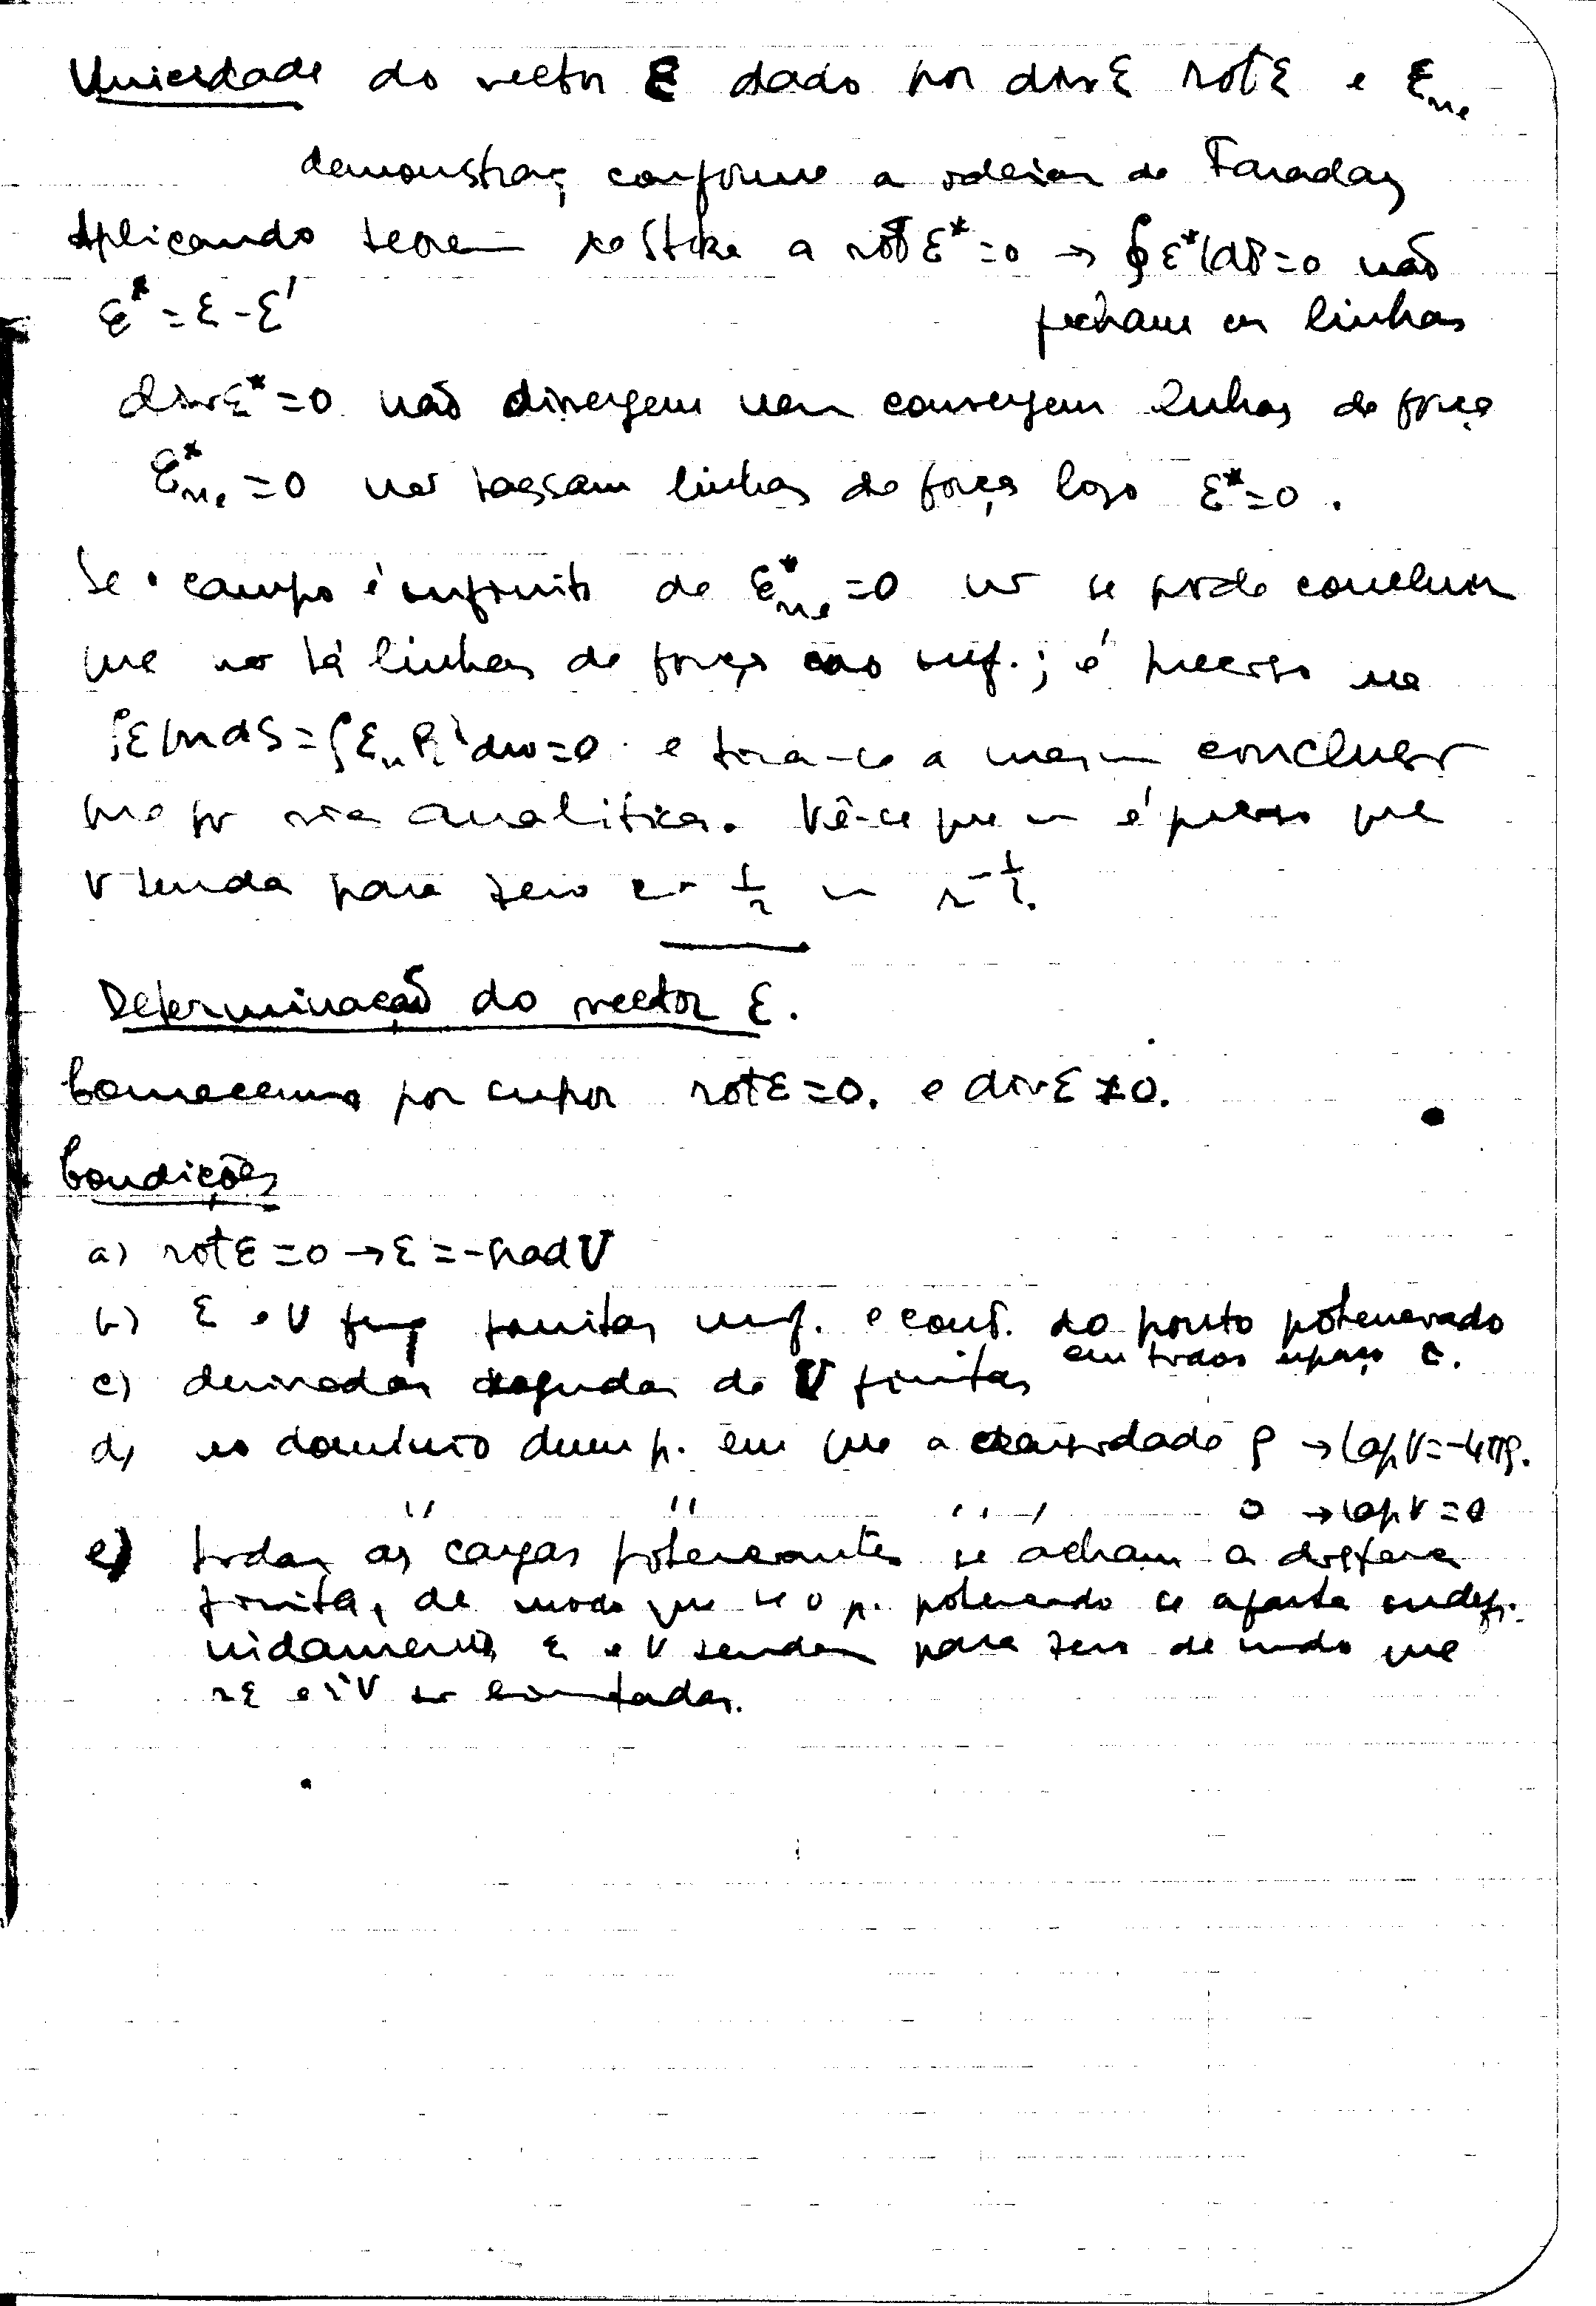 Unicidade do vector ε dado por div ε rot ε e ε_ne
demonstraç conforme a ideia de Faraday
Aplicando teorem de Stoke a rot ε* = 0 → ∮ ε*|dP = 0 não
ε* = ε - ε' fecham as linhas
div ε* = 0 não divergem nem convergem linhas de força
ε*_ne = 0 não passam linhas de força logo ε* = 0.
Se o campo é infinito de ε*_ne = 0 não se pode concluir
que não há linhas de força no inf.; é preciso que
∫ε|n dS = ∫ε_n R² dω = 0 e tira-se a mesm conclusão
que por via analitica. Vê-se que é preciso que
V tenda para zero com 1/r
Determinação do vector ε.
Comecemos por supor rot ε = 0. e div ε ≠ 0.
Condições
a) rot ε = 0 → ε = -grad V
b) ε e V funç finitas unif. e cont. do ponto potenciado
em todos espaço
c) derivadas segundas de V finitas
d) no dominio dum p. em que a densidade ρ → lap V = -4πρ.
" " " 0 → lap V = 0
e) todas as cargas potenciantes se acham a distanc
finita, de modo que se o p. potenciado se afasta indefi-
nidamente ε e V tendem para zero de modo que
e r²V são limitadas.